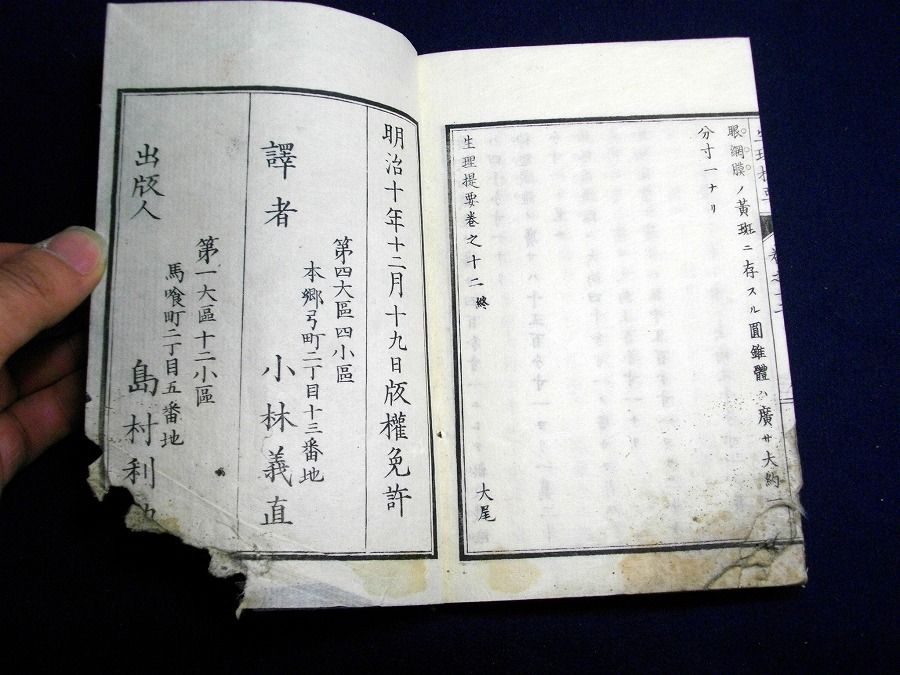 眼網膜ノ黃斑ニ存スル圓錐體ハ廣サ大約一
分寸一ナリ
生理提要卷之十二終
大尾
明治十年十二月十九日版權免許
第四大區四小區
本郷弓町二丁目十三番地
譯者 小林義直
第一大區十二小區
馬喰町二丁目五番地
出版人 島村利